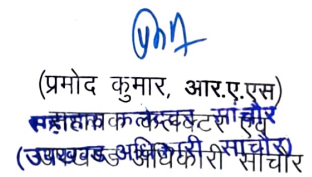 (प्रमोद कुमार, आर.ए.एस)
सहायक कलेक्टर एवं
उपखण्ड अधिकारी सांचौर
सहायक कलेक्टर सांचौर
(उपखण्ड अधिकारी सांचौर)